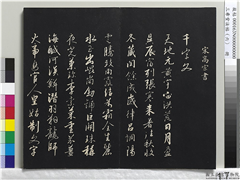 宋高宗書
千字文
天地元黃宇宙洪荒日月盈
昃辰宿列張寒來暑往秋收
冬藏閏餘成歲律呂調陽
雲騰致雨露結為霜金生麗
水玉出崑岡劍號巨闕珠稱
夜光菓珍李柰菜重芥薑
海鹹河淡鱗潛羽翔龍師
火帝鳥官人皇始制文字